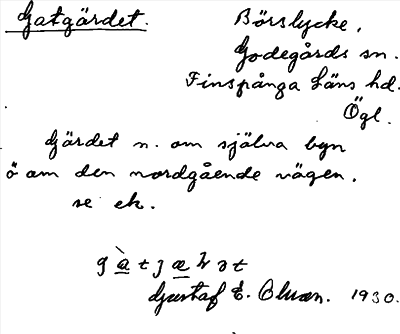 Gatgärdet. Börslycke,
Godegårds sn.
Finspånga Läns hd.
Ögl.
Gärdet n. om själva byn
ö om den nordgående vägen.
se ek.
Gustaf E. Olsson. 1930.